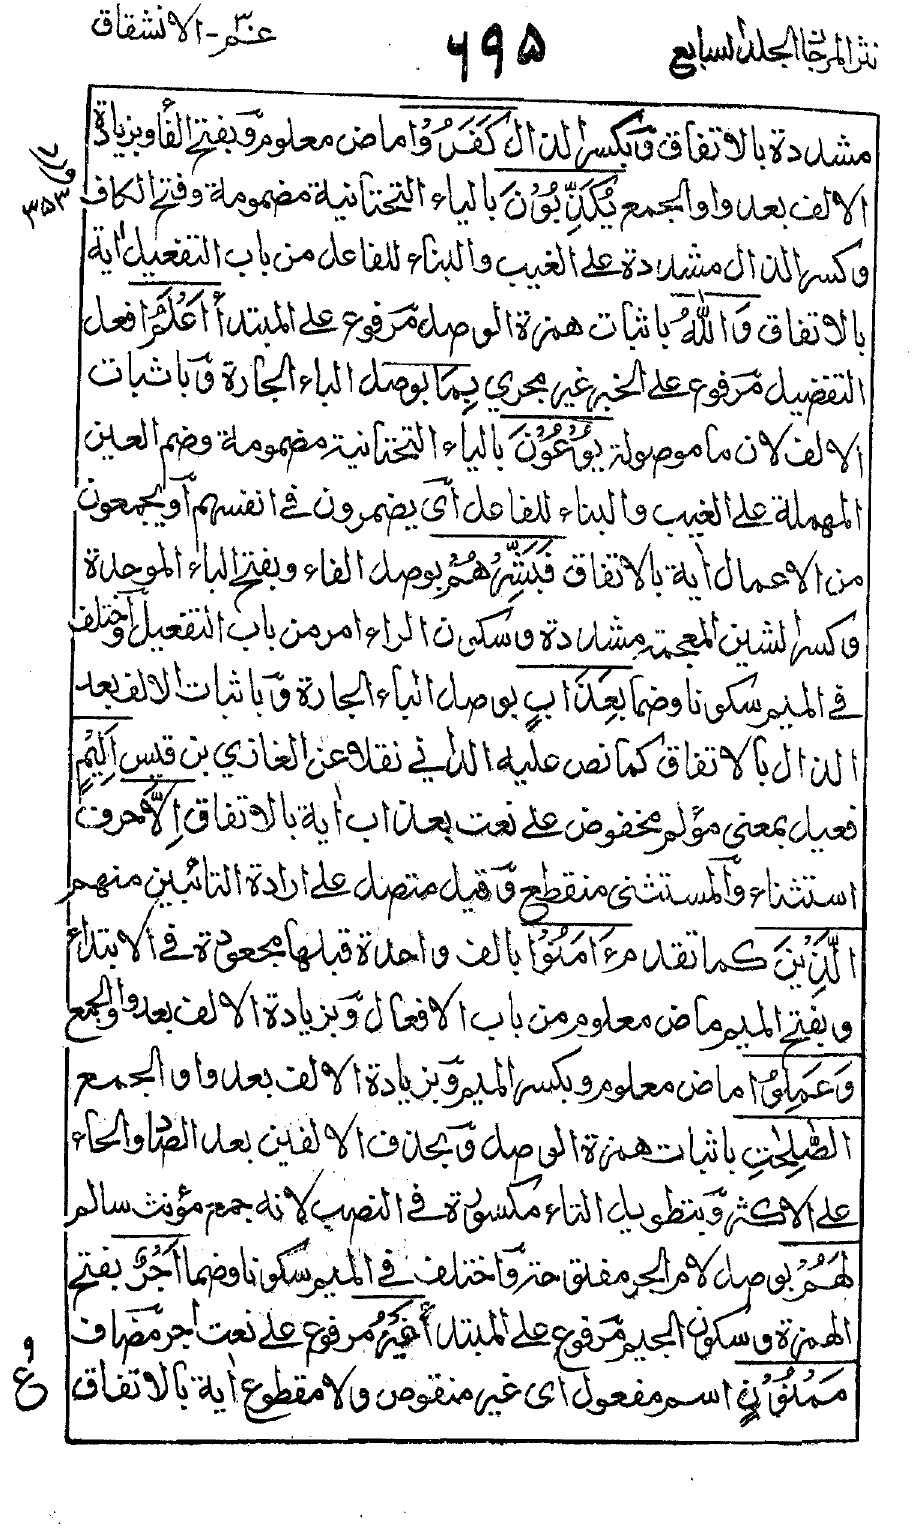 نثر المرجان الجلد السابع ۶۹۵ عم ۳۰ - الانشقاق
مشددة بالاتفاق وبكسر الذال كَفَرُوْا ماض معلوم وبفتح الفاء وبزيادة
الالف بعد واو الجمع يُكَذِّبُوْنَ بالياء التحتانية مضمومة وفتح الكاف
وكسر الذال مشددة على الغيب والبناء للفاعل من باب التفعيل اية
بالاتفاق وَاللّٰهُ باثبات همزة الوصل مرفوع على المبتدأ اَعْلَمُ افعل
التفضيل مرفوع على الخبر غير مجري بِمَا بوصل الباء الجارة وباثبات
الالف لان ما موصولة يُوْعُوْنَ بالياء التحتانية مضمومة وضم العين
المهملة على الغيب والبناء للفاعل أي يضمرون في انفسهم أو يجمعون
من الاعمال اية بالاتفاق فَبَشِّرْهُمْ بوصل الفاء وبفتح الباء الموحدة
وكسر الشين المعجمة مشددة وسكون الراء امر من باب التفعيل واختلف
في الميم سكونا وضما بِعَذَابٍ بوصل الباء الجارة وباثبات الالف بعد
الذال بالاتفاق كما نص عليه الداني نقلا عن الغازي بن قيس اَلِيْمٍ
فعيل بمعنى مؤلم مخفوض على نعت بعذاب اية بالاتفاق اِلَّا حرف
استثناء والمستثنى منقطع وقيل متصل على ارادة التائبين منهم
الَّذِيْنَ كما تقدم ءَامَنُوْا بالف واحدة قبلها مجعودة في الابتداء
وبفتح الميم ماض معلوم من باب الافعال وبزيادة الالف بعد واو الجمع
وَعَمِلُوْا ماض معلوم وبكسر الميم وبزيادة الالف بعد واو الجمع
الصّٰلِحٰتِ باثبات همزة الوصل وبحذف الالفين بعد الصاد والحاء
على الاكثر وبتطويل التاء مكسورة في النصب لانه جمع مؤنث سالم
لَهُمْ بوصل لام الجر مفتوحة واختلف في الميم سكونا وضما اَجْرٌ بفتح
الهمزة وسكون الجيم مرفوع على المبتدأ غَيْرُ مرفوع على نعت اجر مضاف
مَمْنُوْنٍ اسم مفعول أي غير منقوص ولا مقطوع اية بالاتفاق
۳۵۳
ع